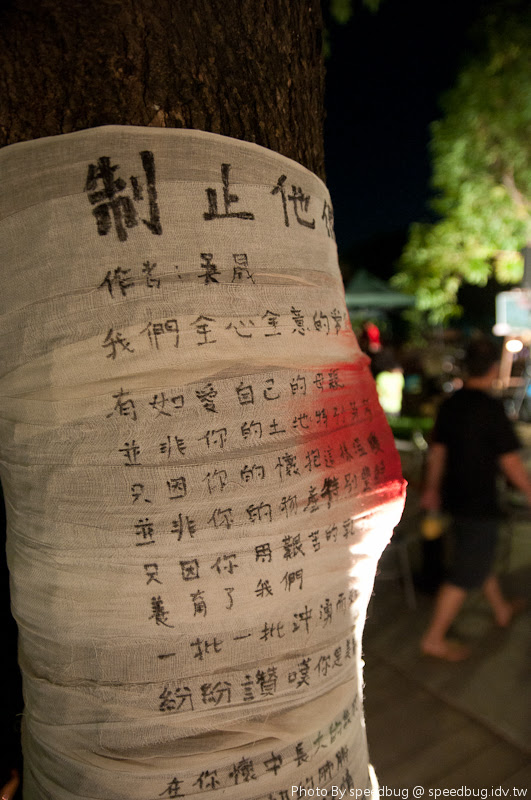 制止他們
作者：吳晟
我們全心全意的愛
有如愛自己的母親
並非你的土地特別
只因你的懷抱這
並非你的物產特別豐
只因你用艱苦的乳
養育了我們
一批一批沖湧而
紛紛讚嘆你是
在你懷中長大的
Photo By speedbug @ speedbug.idv.tw